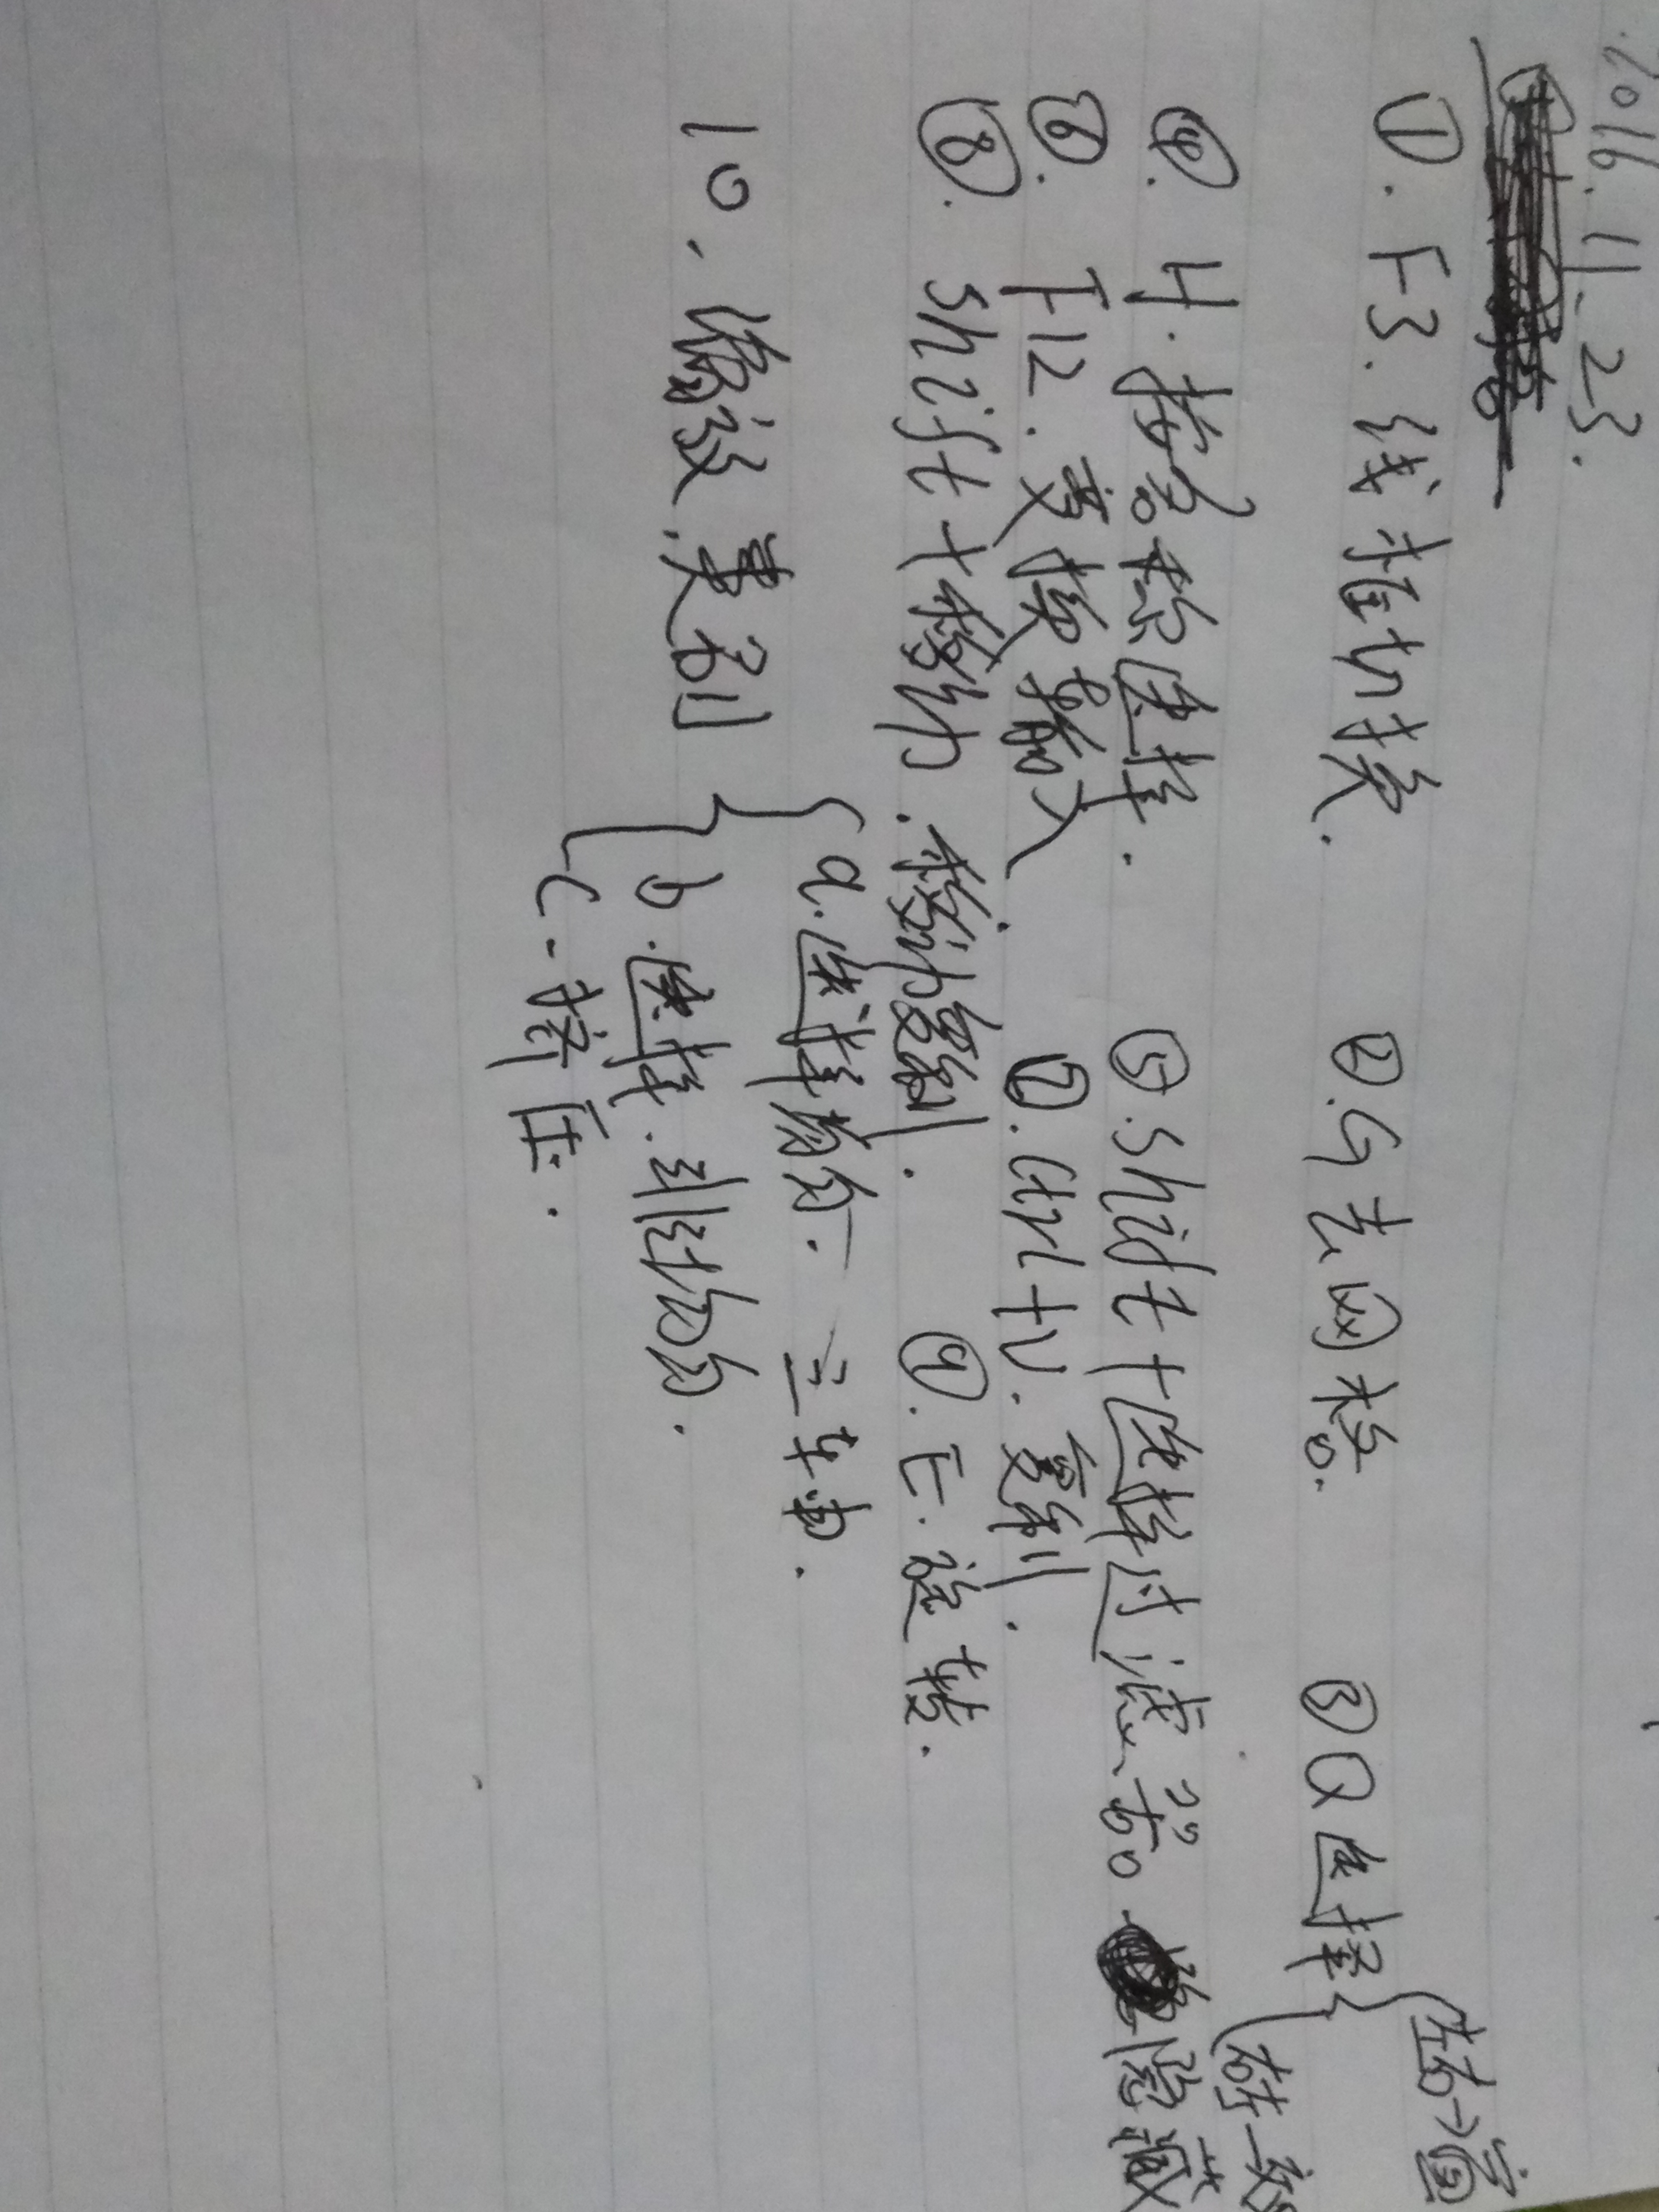 2016.11.23.
①.F3.线框切换. ②.G去网格. ③Q选择{左右→窗
右左→交
④.H.按名称选择. ⑤.shift+选择过滤器.隐藏
⑥.F12.变换输入. ⑦.ctrl+V.复制.
⑧.shift+移动.移动复制. ⑨.E.旋转.
10、修改.复制{a.选择物体.
三车由.
b.选择.
c-挤压.